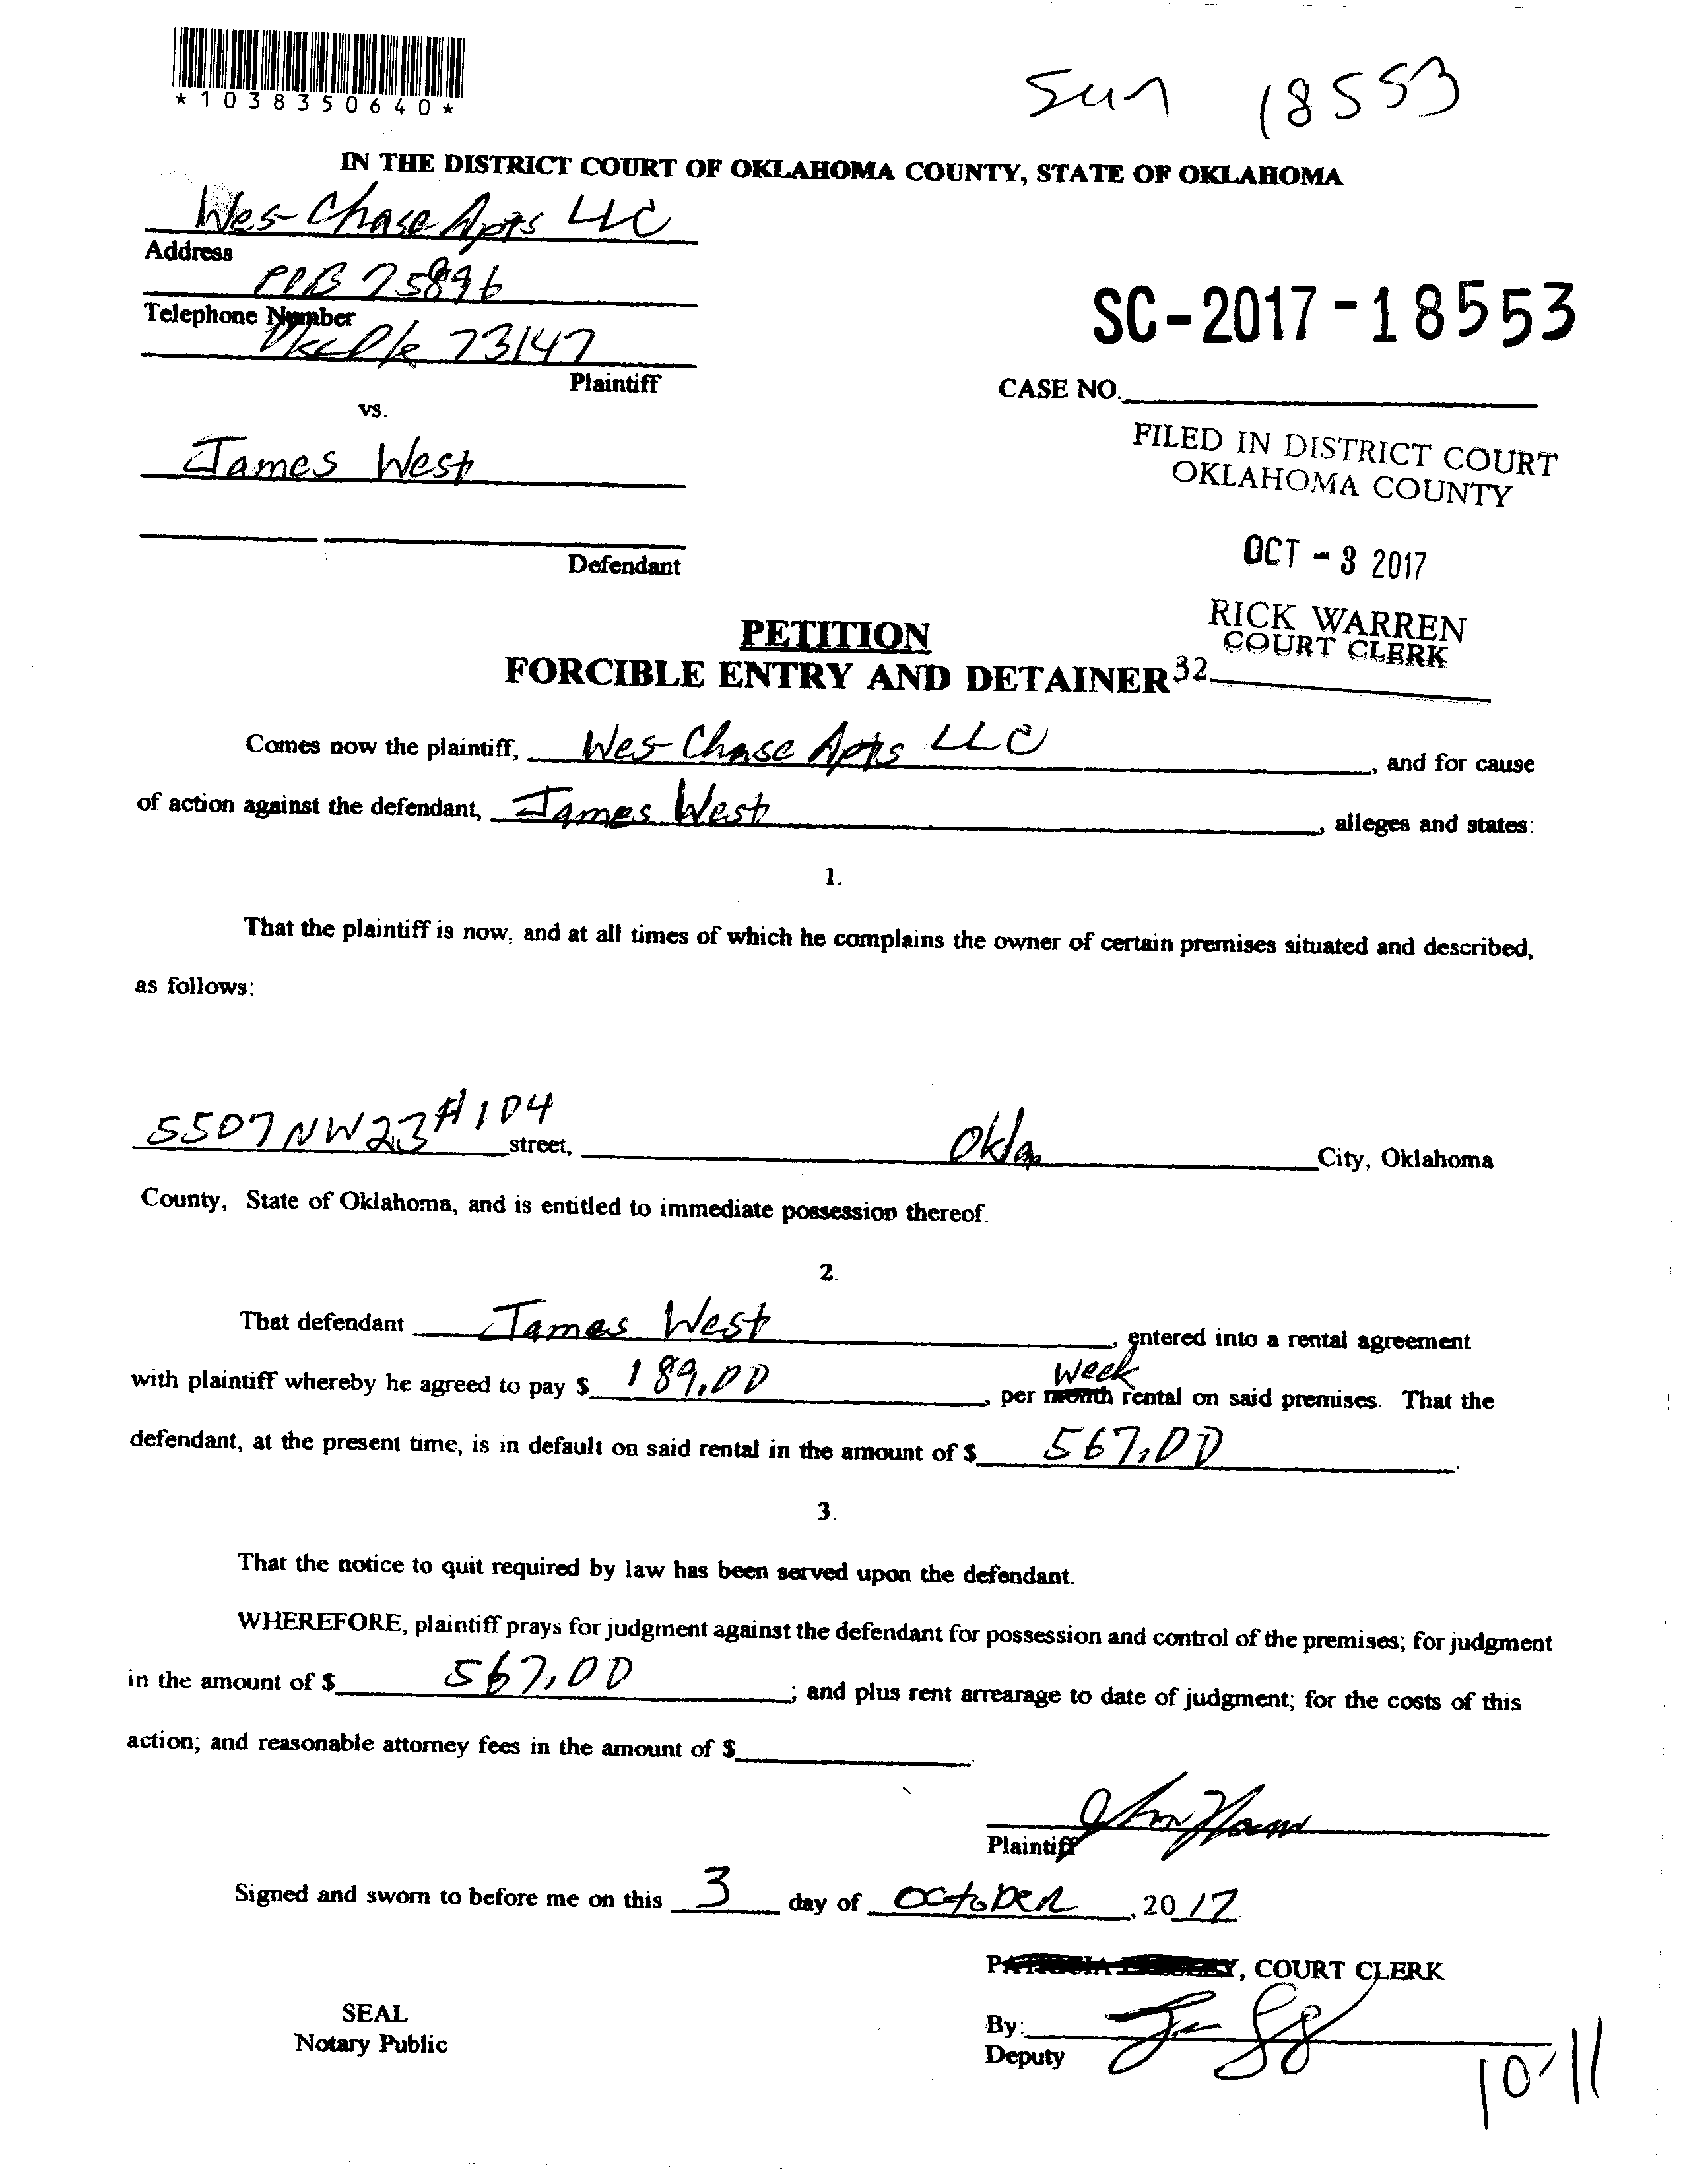 *1038350640*
Sun 18553
IN THE DISTRICT COURT OF OKLAHOMA COUNTY, STATE OF OKLAHOMA
Wes-Chase Apts LLC
Address
POB 75896
Telephone Number
Okc Ok 73147
Plaintiff
SC-2017-18553
CASE NO.
vs.
James West
Defendant
FILED IN DISTRICT COURT
OKLAHOMA COUNTY
OCT - 3 2017
RICK WARREN
COURT CLERK
32
PETITION
FORCIBLE ENTRY AND DETAINER
Comes now the plaintiff, Wes-Chase Apts LLC, and for cause
of action against the defendant, James West, alleges and states:
1.
That the plaintiff is now, and at all times of which he complains the owner of certain premises situated and described,
as follows:
5507 NW 23 #104 street, Okla City, Oklahoma
County, State of Oklahoma, and is entitled to immediate possession thereof.
2.
That defendant James West, entered into a rental agreement
with plaintiff whereby he agreed to pay $ 189.00, per month week rental on said premises. That the
defendant, at the present time, is in default on said rental in the amount of $ 567.00.
3.
That the notice to quit required by law has been served upon the defendant.
WHEREFORE, plaintiff prays for judgment against the defendant for possession and control of the premises; for judgment
in the amount of $ 567.00; and plus rent arrearage to date of judgment; for the costs of this
action; and reasonable attorney fees in the amount of $.
Plaintiff
Signed and sworn to before me on this 3 day of OctobER, 2017.
, COURT CLERK
SEAL
Notary Public
By:
Deputy
10-11